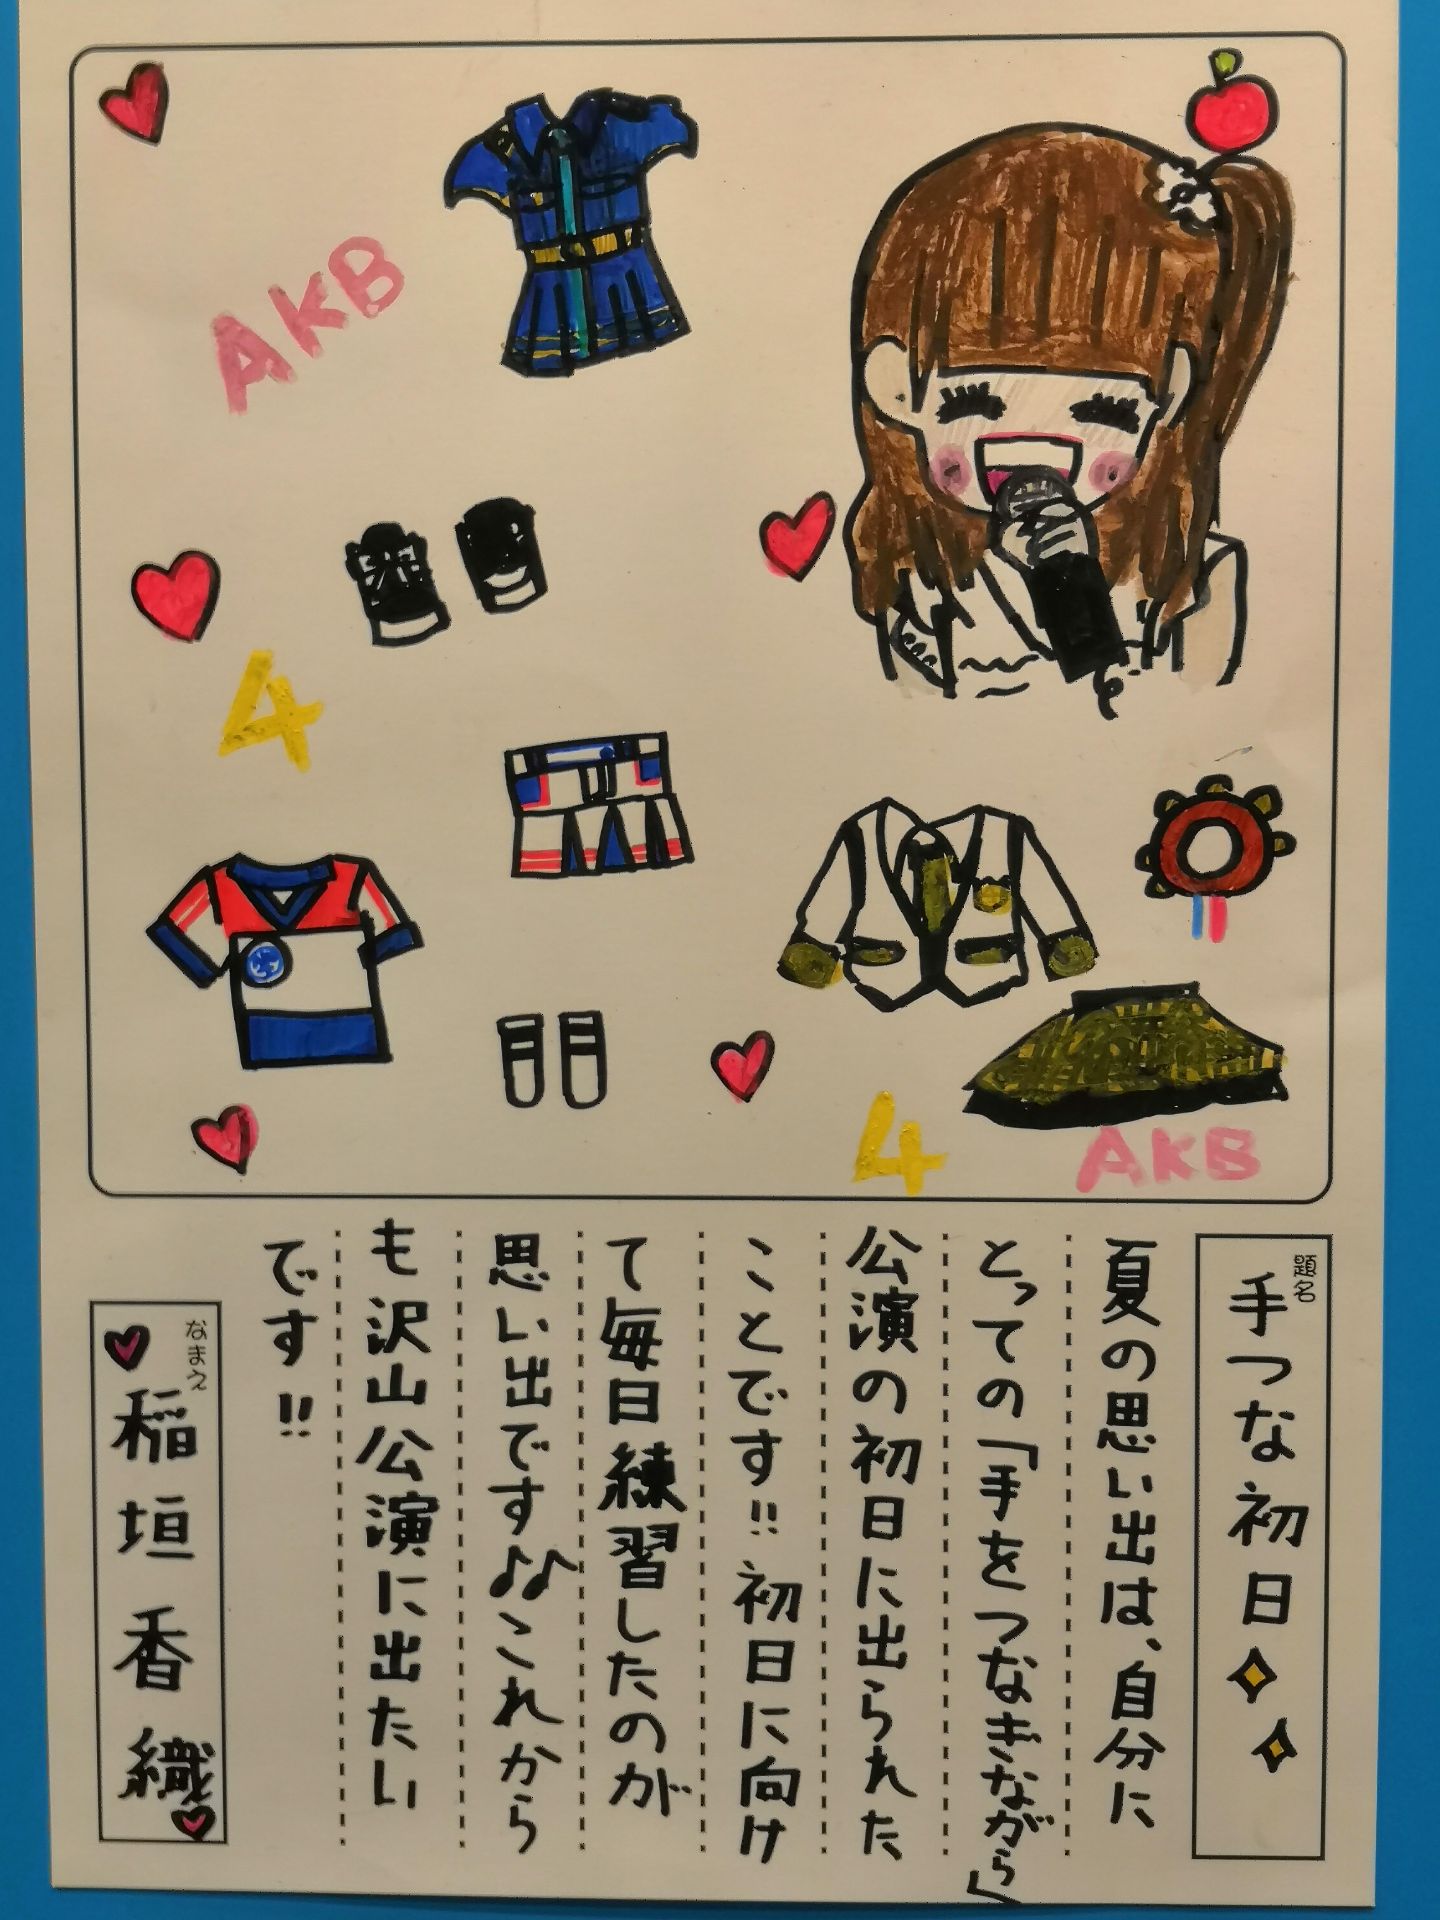 AKB
4
4
AKB
題名
手つな初日
夏の思い出は、自分に
とっての「手をつなぎながら」
公演の初日に出られた
ことです!!初日に向け
て毎日練習したのが
思い出です♪♪これから
も沢山公演に出たい
です!!
なまえ
稲垣香織